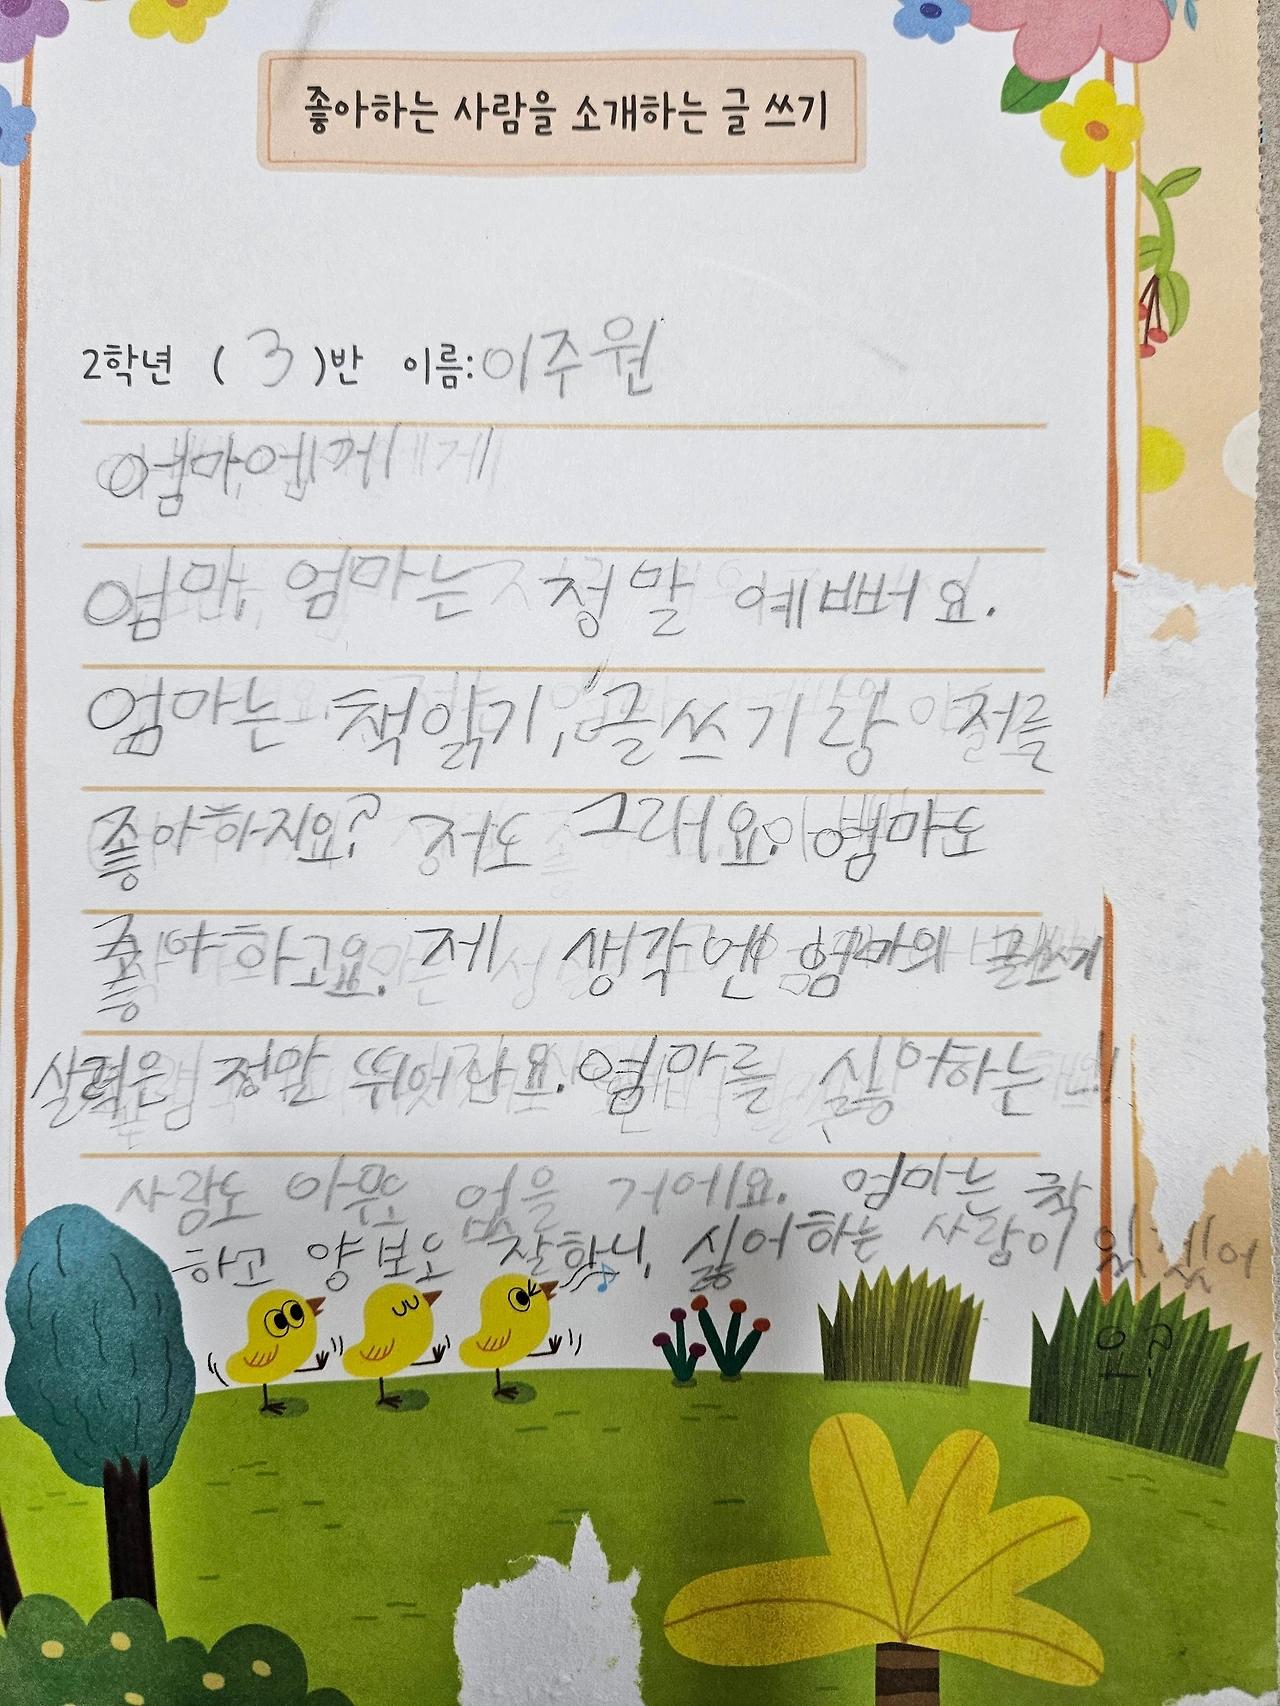 좋아하는 사람을 소개하는 글 쓰기
2학년 ( 3 )반 이름: 이주원
엄마에게
엄마, 엄마는 정말 예뻐요.
엄마는 책 읽기, 글쓰기랑 저를
좋아하지요? 저도 그래요. 엄마도
좋아하고요. 제 생각엔 엄마의 글쓰기
실력은 정말 뛰어난요. 엄마를 싫어하는
사람도 아무도 없을 거에요. 엄마는 착
하고 양보도 잘하니, 싫어하는 사람이 있겠어
요?